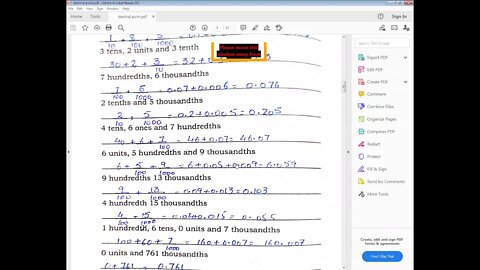 decimal point.pdf - Adobe Acrobat Reader DC
Home Tools decimal point.pdf Sign In
1 + 3 + 5
10 100 1000
3 tens, 2 units and 3 tenth
Please move this window away from
30+2+3 = 32+
10
7 hundredths, 6 thousandths
7 + 6 = 0.07+0.006 = 0.076
100 1000
2 tenths and 5 thousandths
2 + 5 = 0.2+0.005 = 0.205
10 1000
4 tens, 6 ones and 7 hundredths
40+6+7 = 46+0.07 = 46.07
100
6 units, 5 hundredths and 9 thousandths
6+5+9 = 6+0.05+0.009=6.059
100 1000
9 hundredths 13 thousandths
9 + 13 = 0.09+0.013=0.103
100 1000
4 hundredth 15 thousandths
4 + 15 = 0.04+0.015 = 0.055
100 1000
1 hundred, 6 tens, 0 units and 7 thousandths
100+60+7 = 160+0.007 = 160.007
1000
0 units and 761 thousandths
0+761 = 0.761
Export PDF
Edit PDF
Create PDF
Comment
Combine Files
Organize Pages
Redact
Protect
Fill & Sign
Send for Comments
More Tools
Create, edit and sign PDF
forms & agreements
Free 7-Day Trial